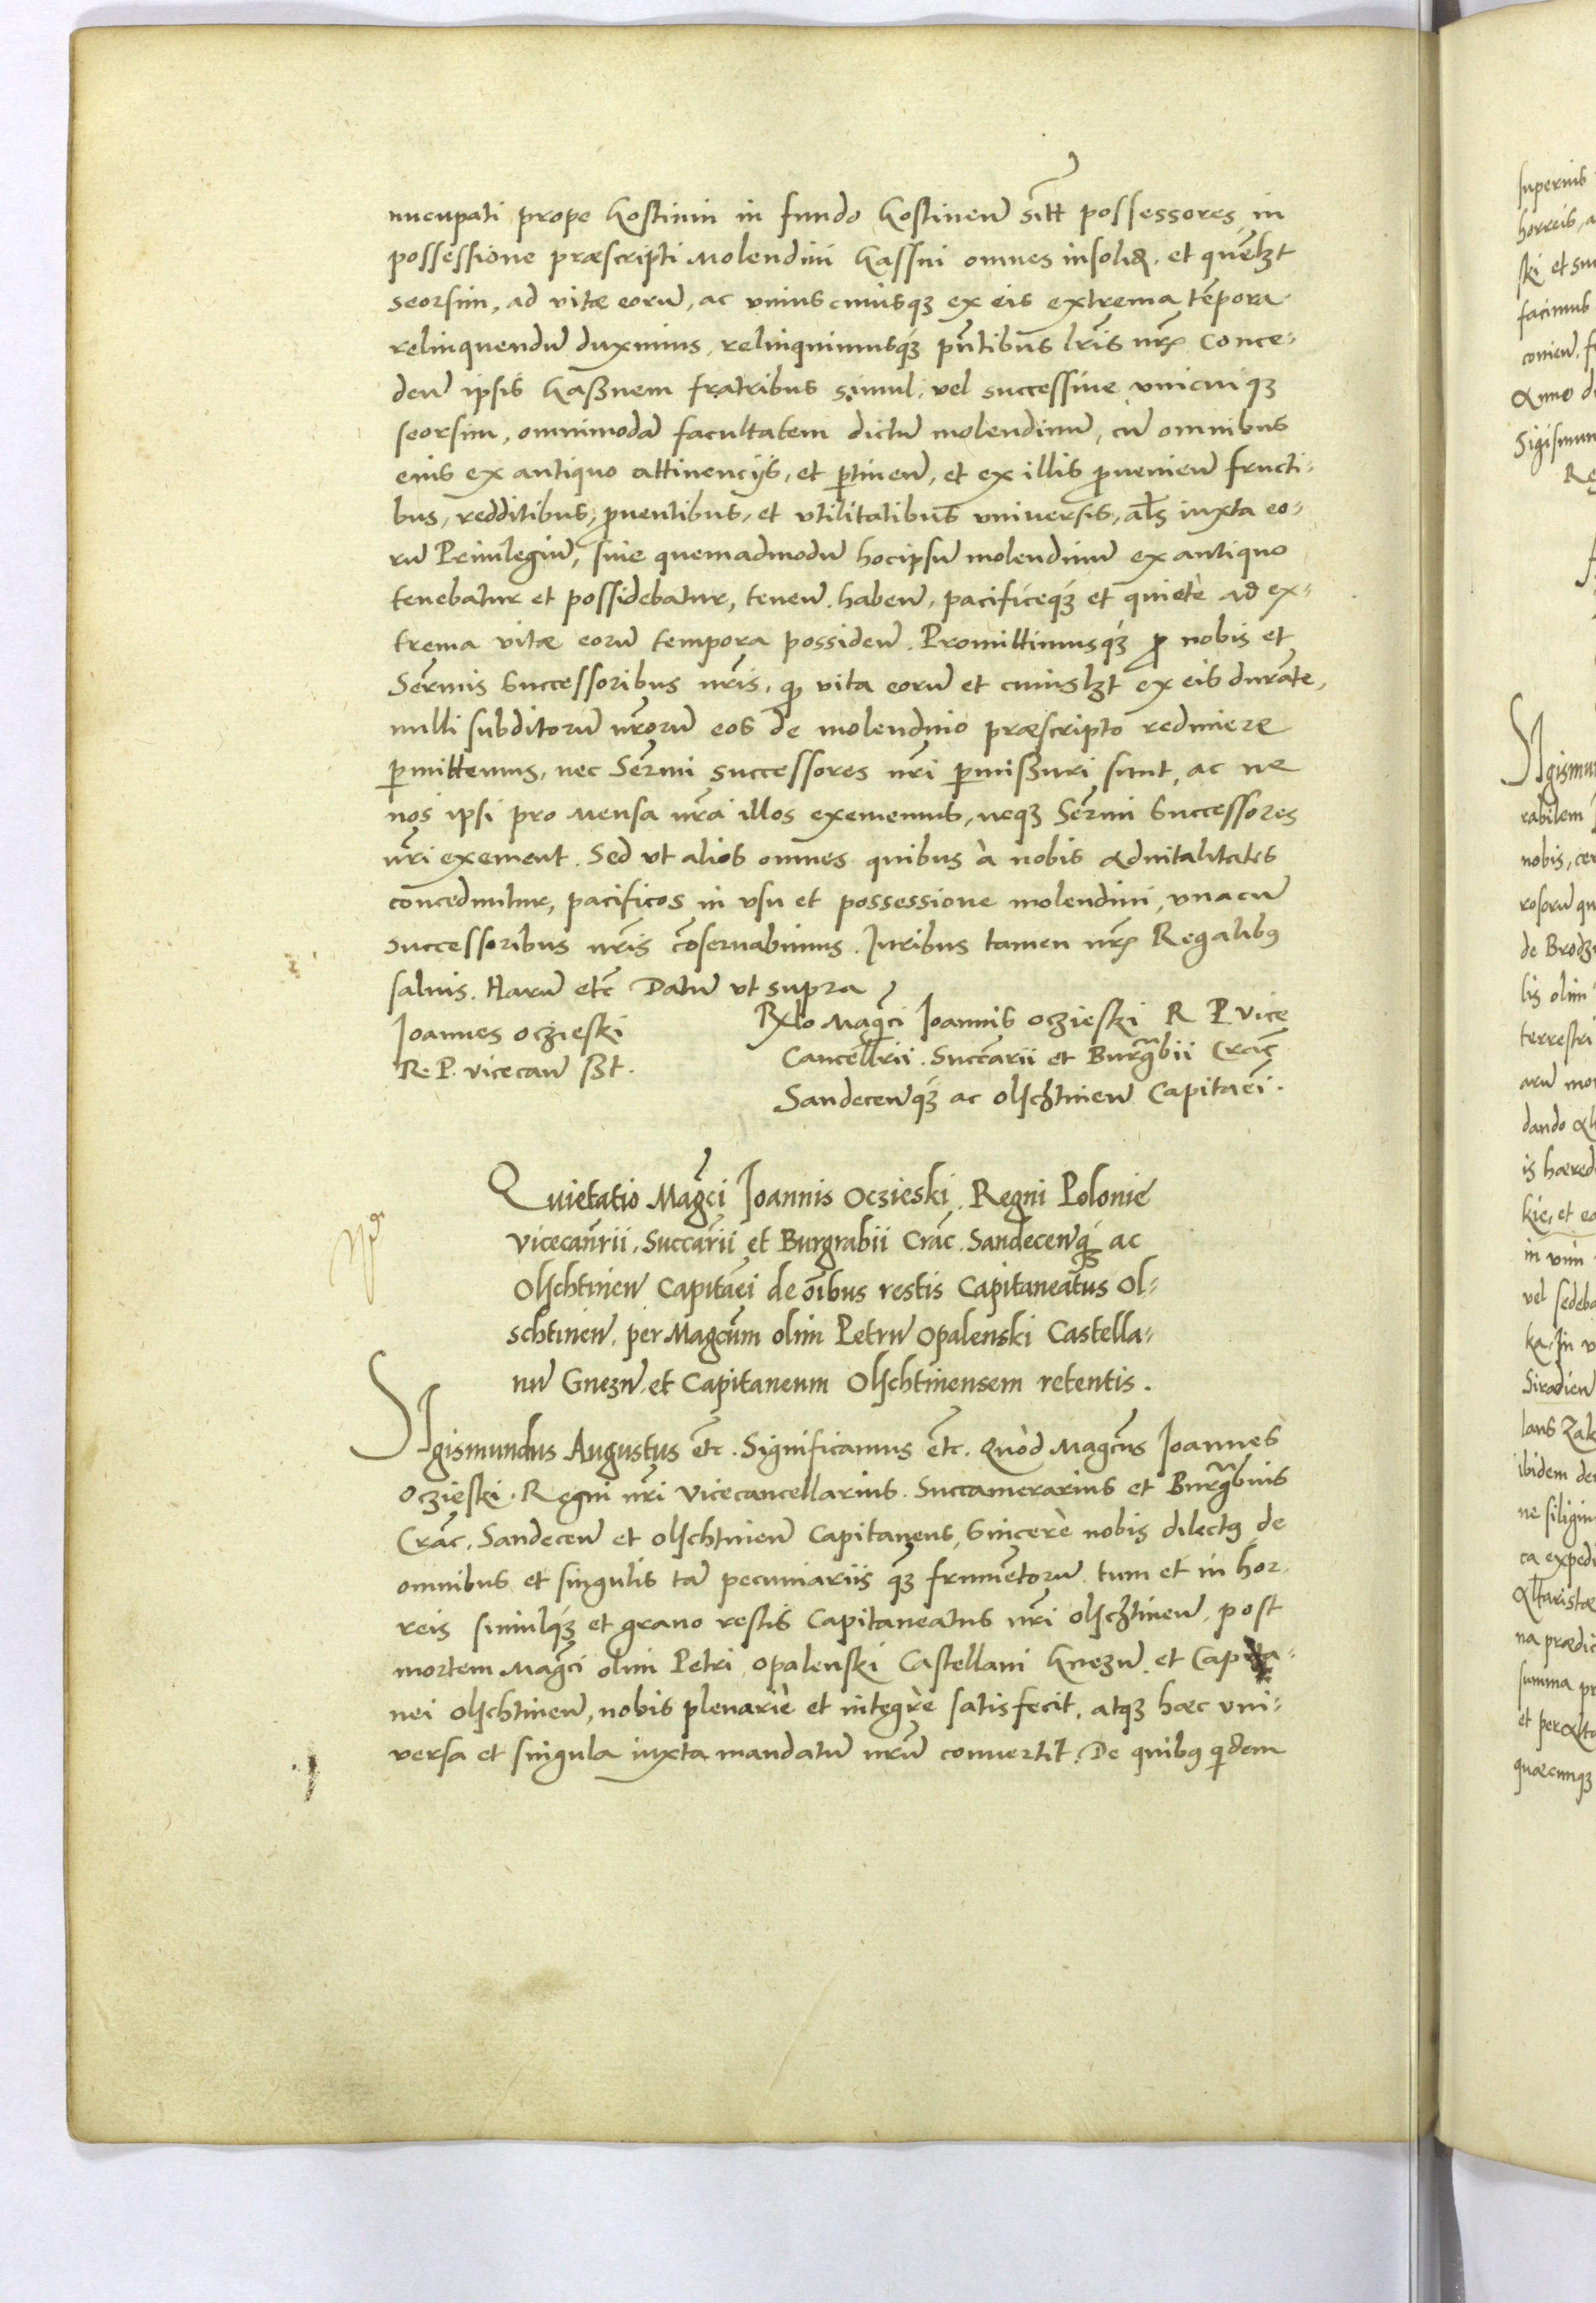 nucupati prope Gostinin in fundo Gostineñ sitt possessores, in
possessione præscripti Molendini Gassni omnes insolid. et quelzt
seorsim, ad vitæ eorũ, ac vnius cuiusqʒ ex eis extrema tẽpora
relinquendũ duximus, relinquimusqʒ pñtibus lris nrꝭ. Conce-
deñ ipsis Gaßnem fratribus simul, vel successiue vnicuiqʒ
seorsim, omnimodã facultatem dictũ molendinũ, cũ omnibus
eius ex antiquo attinencijs, et ꝑtineñ, et ex illis ꝓuenieñ fructi-
bus, redditibus, ꝓuentibus, et vtilitatibus vniuersis, als iuxta eo-
rũ Priuilegiũ, siue quemadmodũ hocipsũ molendinũ ex antiquo
tenebatur et possidebatur, teneñ. habeñ, pacificeqʒ et quietè ad ex-
trema vitæ eorũ tempora possideñ. Promittimusqʒ ꝓ nobis et
Sermis Successoribus nrĩs, qꝫ vita eorũ et cuiuslzt ex eis durãte,
nulli subditorũ nrorũ eos de molendino præscripto redimere
ꝑmittemus, nec Sermi successores nri ꝑmißuri sunt, ac ne
nos ipsi pro Mensa nra illos exememus, neqʒ Sermi Successores
nri exement. Sed vt alios omnes quibus à nobis aduitalitates
conceduntur, pacificos in vsu et possessione molendini, vnacũ
successoribus nrĩs cõseruabimus. Iuribus tamen nrꝭ Regalibꝰ
saluis. Harũ etc̃ Datũ vt supra
Ioannes Oczieski
R. P. vicecañ ßt.
Rxlo Magci Ioannis Oczieski R P Vice
Cancellrii. Succarii et Burgbii Crac̃
Sandeceñqʒ ac Olschtineñ Capitaei.
Quietatio Magci Ioannis Oczieski. Regni Polonie
vicecanrii, Succarii et Burgrabii Crac. Sandeceñqʒ ac
Olschtineñ Capitaei de oĩbus restis Capitaneatus Ol-
schtineñ, per Magcum olim Petrũ Opalenski Castella-
nũ Gnezñ, et Capitaneum Olschtinensem retentis.
Sigismundus Augustus etc. Significamus etc. Quòd Magcus Ioannes
Oczieski. Regni nri Vicecancellarius. Succamerarius et Burgbius
Crac. Sandeceñ et Olschtineñ Capitaneus, Sincerè nobis dilectꝰ de
omnibus et singulis tã pecuniariis qʒ frumẽtorũ, tum et in hor-
reis simulqʒ et grano restis Capitaneatus nri Olschtineñ, post
mortem Magci olim Petri Opalenski Castellani Gnezñ. et Capita-
nei Olschtineñ, nobis plenariè et integrè satisfecit, atqʒ hæc vni-
versa et singula iuxta mandatũ nrũ conuertit. De quibꝰ qdem